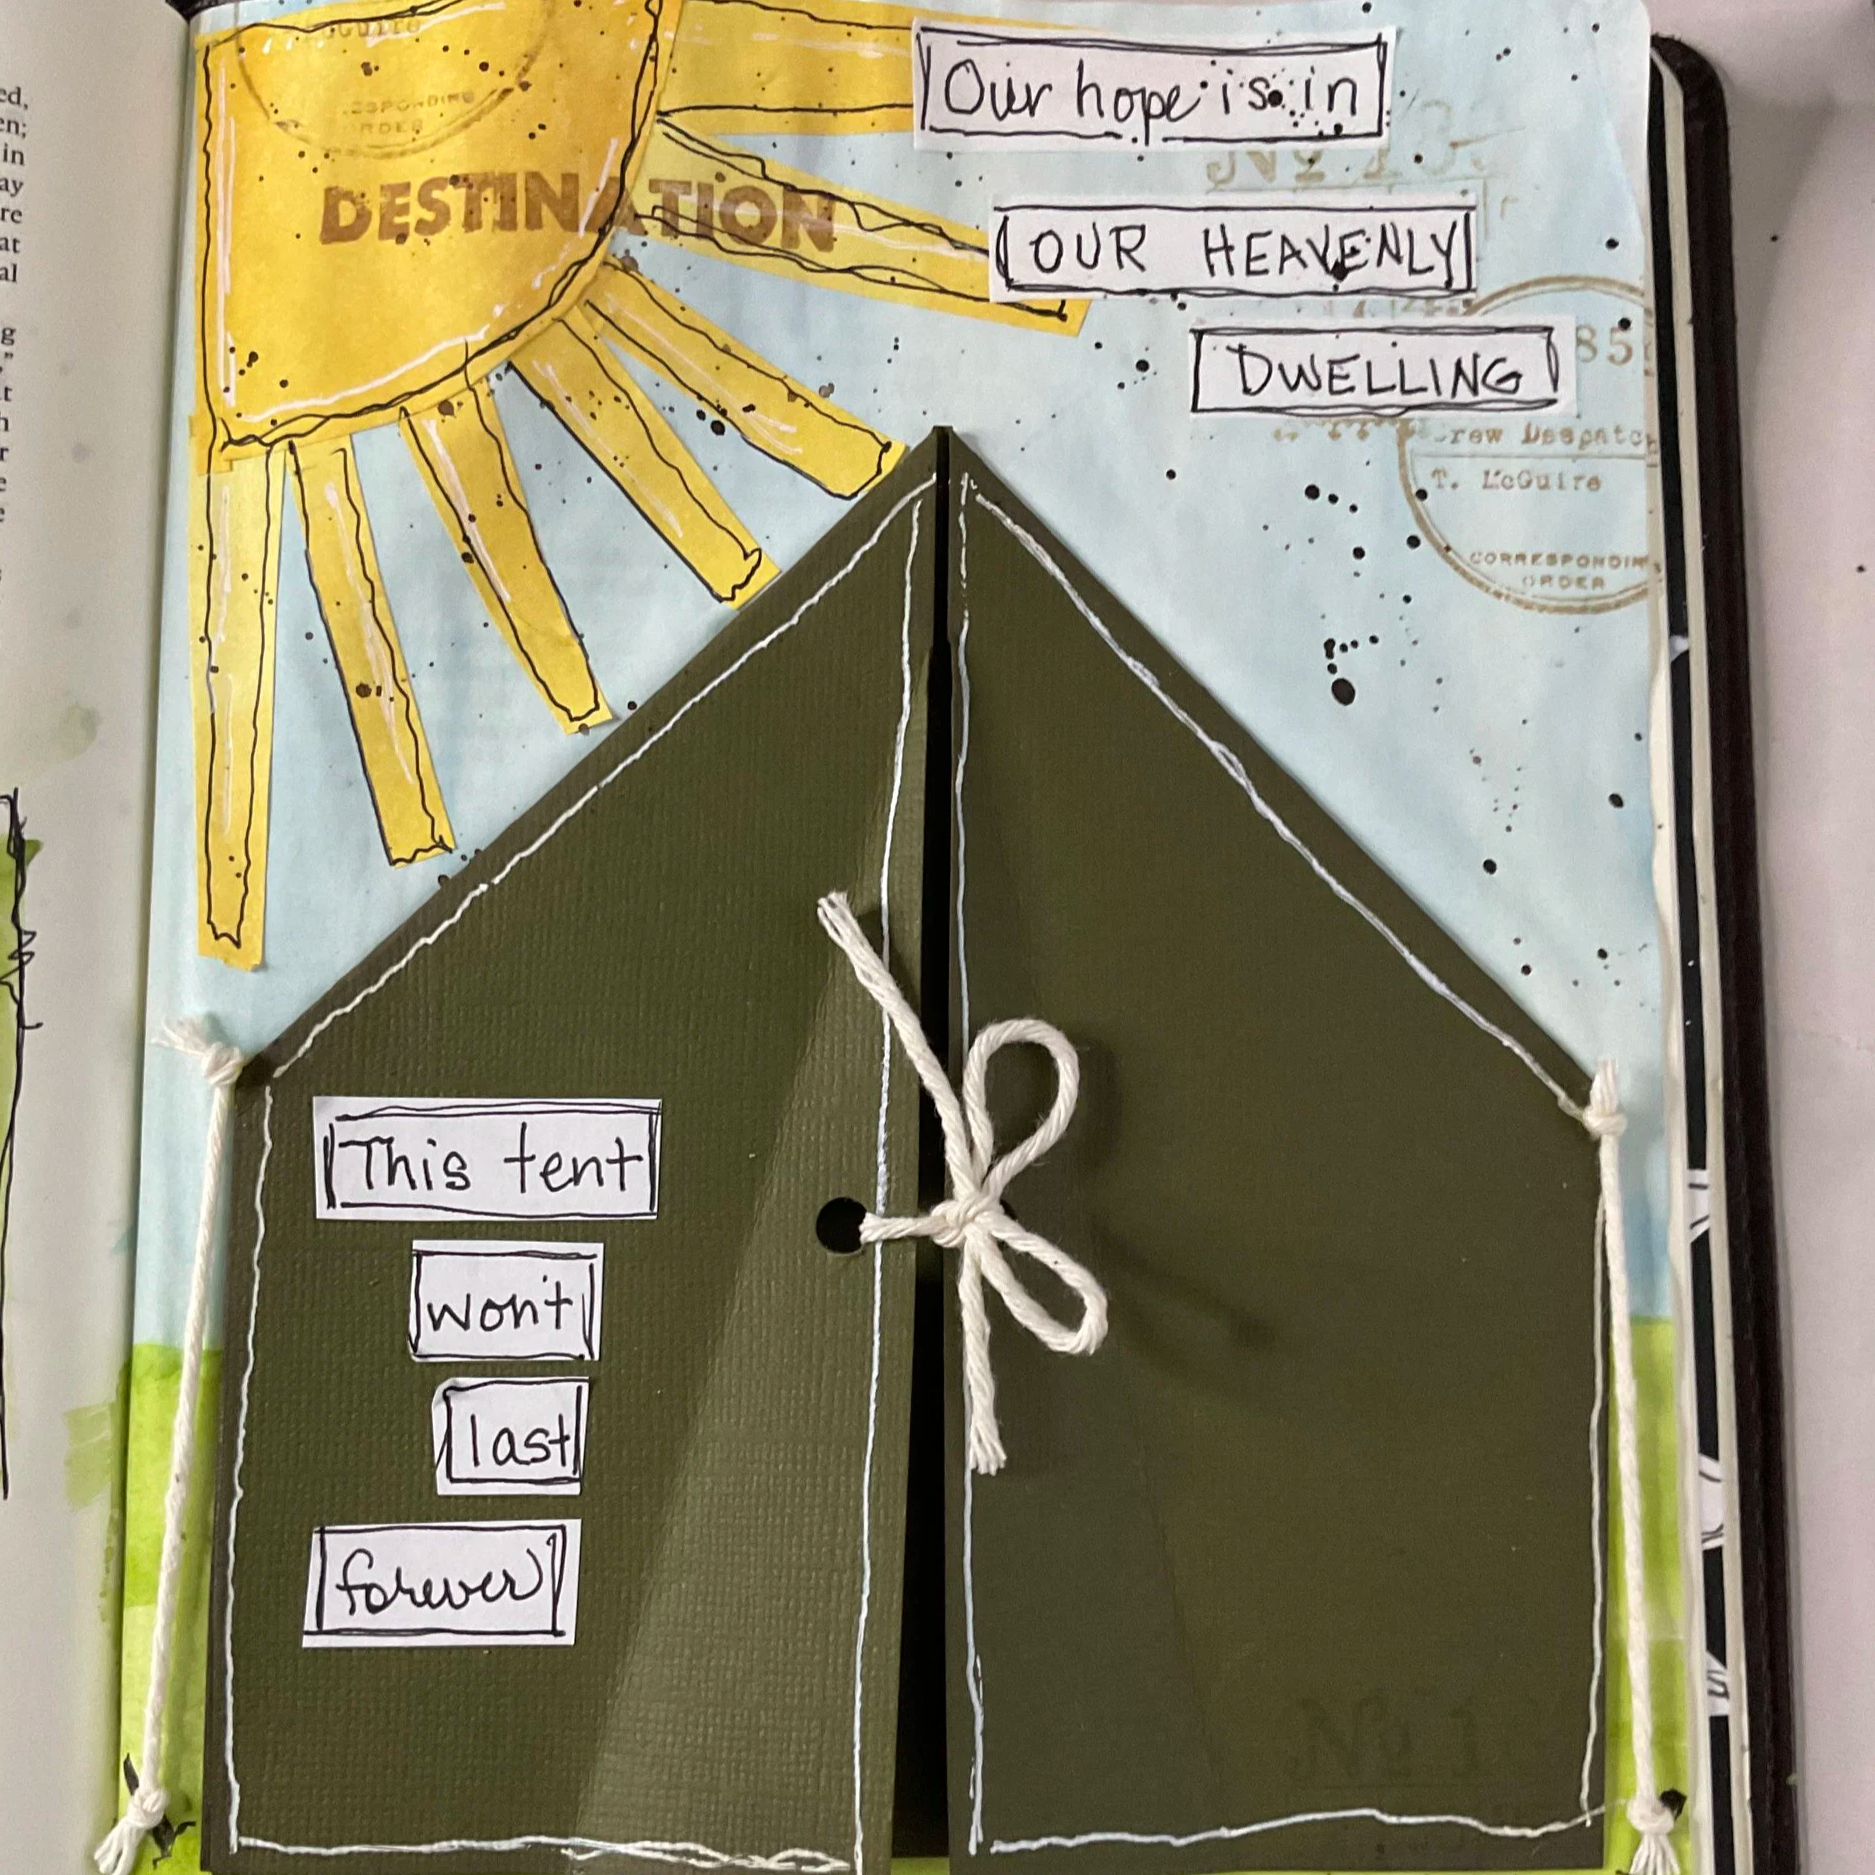 ed,
en;
in
ay
re
at
al
g
McGuire
CORRESPONDING
ORDER
DESTINATION
Our hope is in
OUR HEAVENLY
DWELLING
85
rew Despatch
T. McGuire
CORRESPONDIN
ORDER
This tent
won't
last
forever
No 1